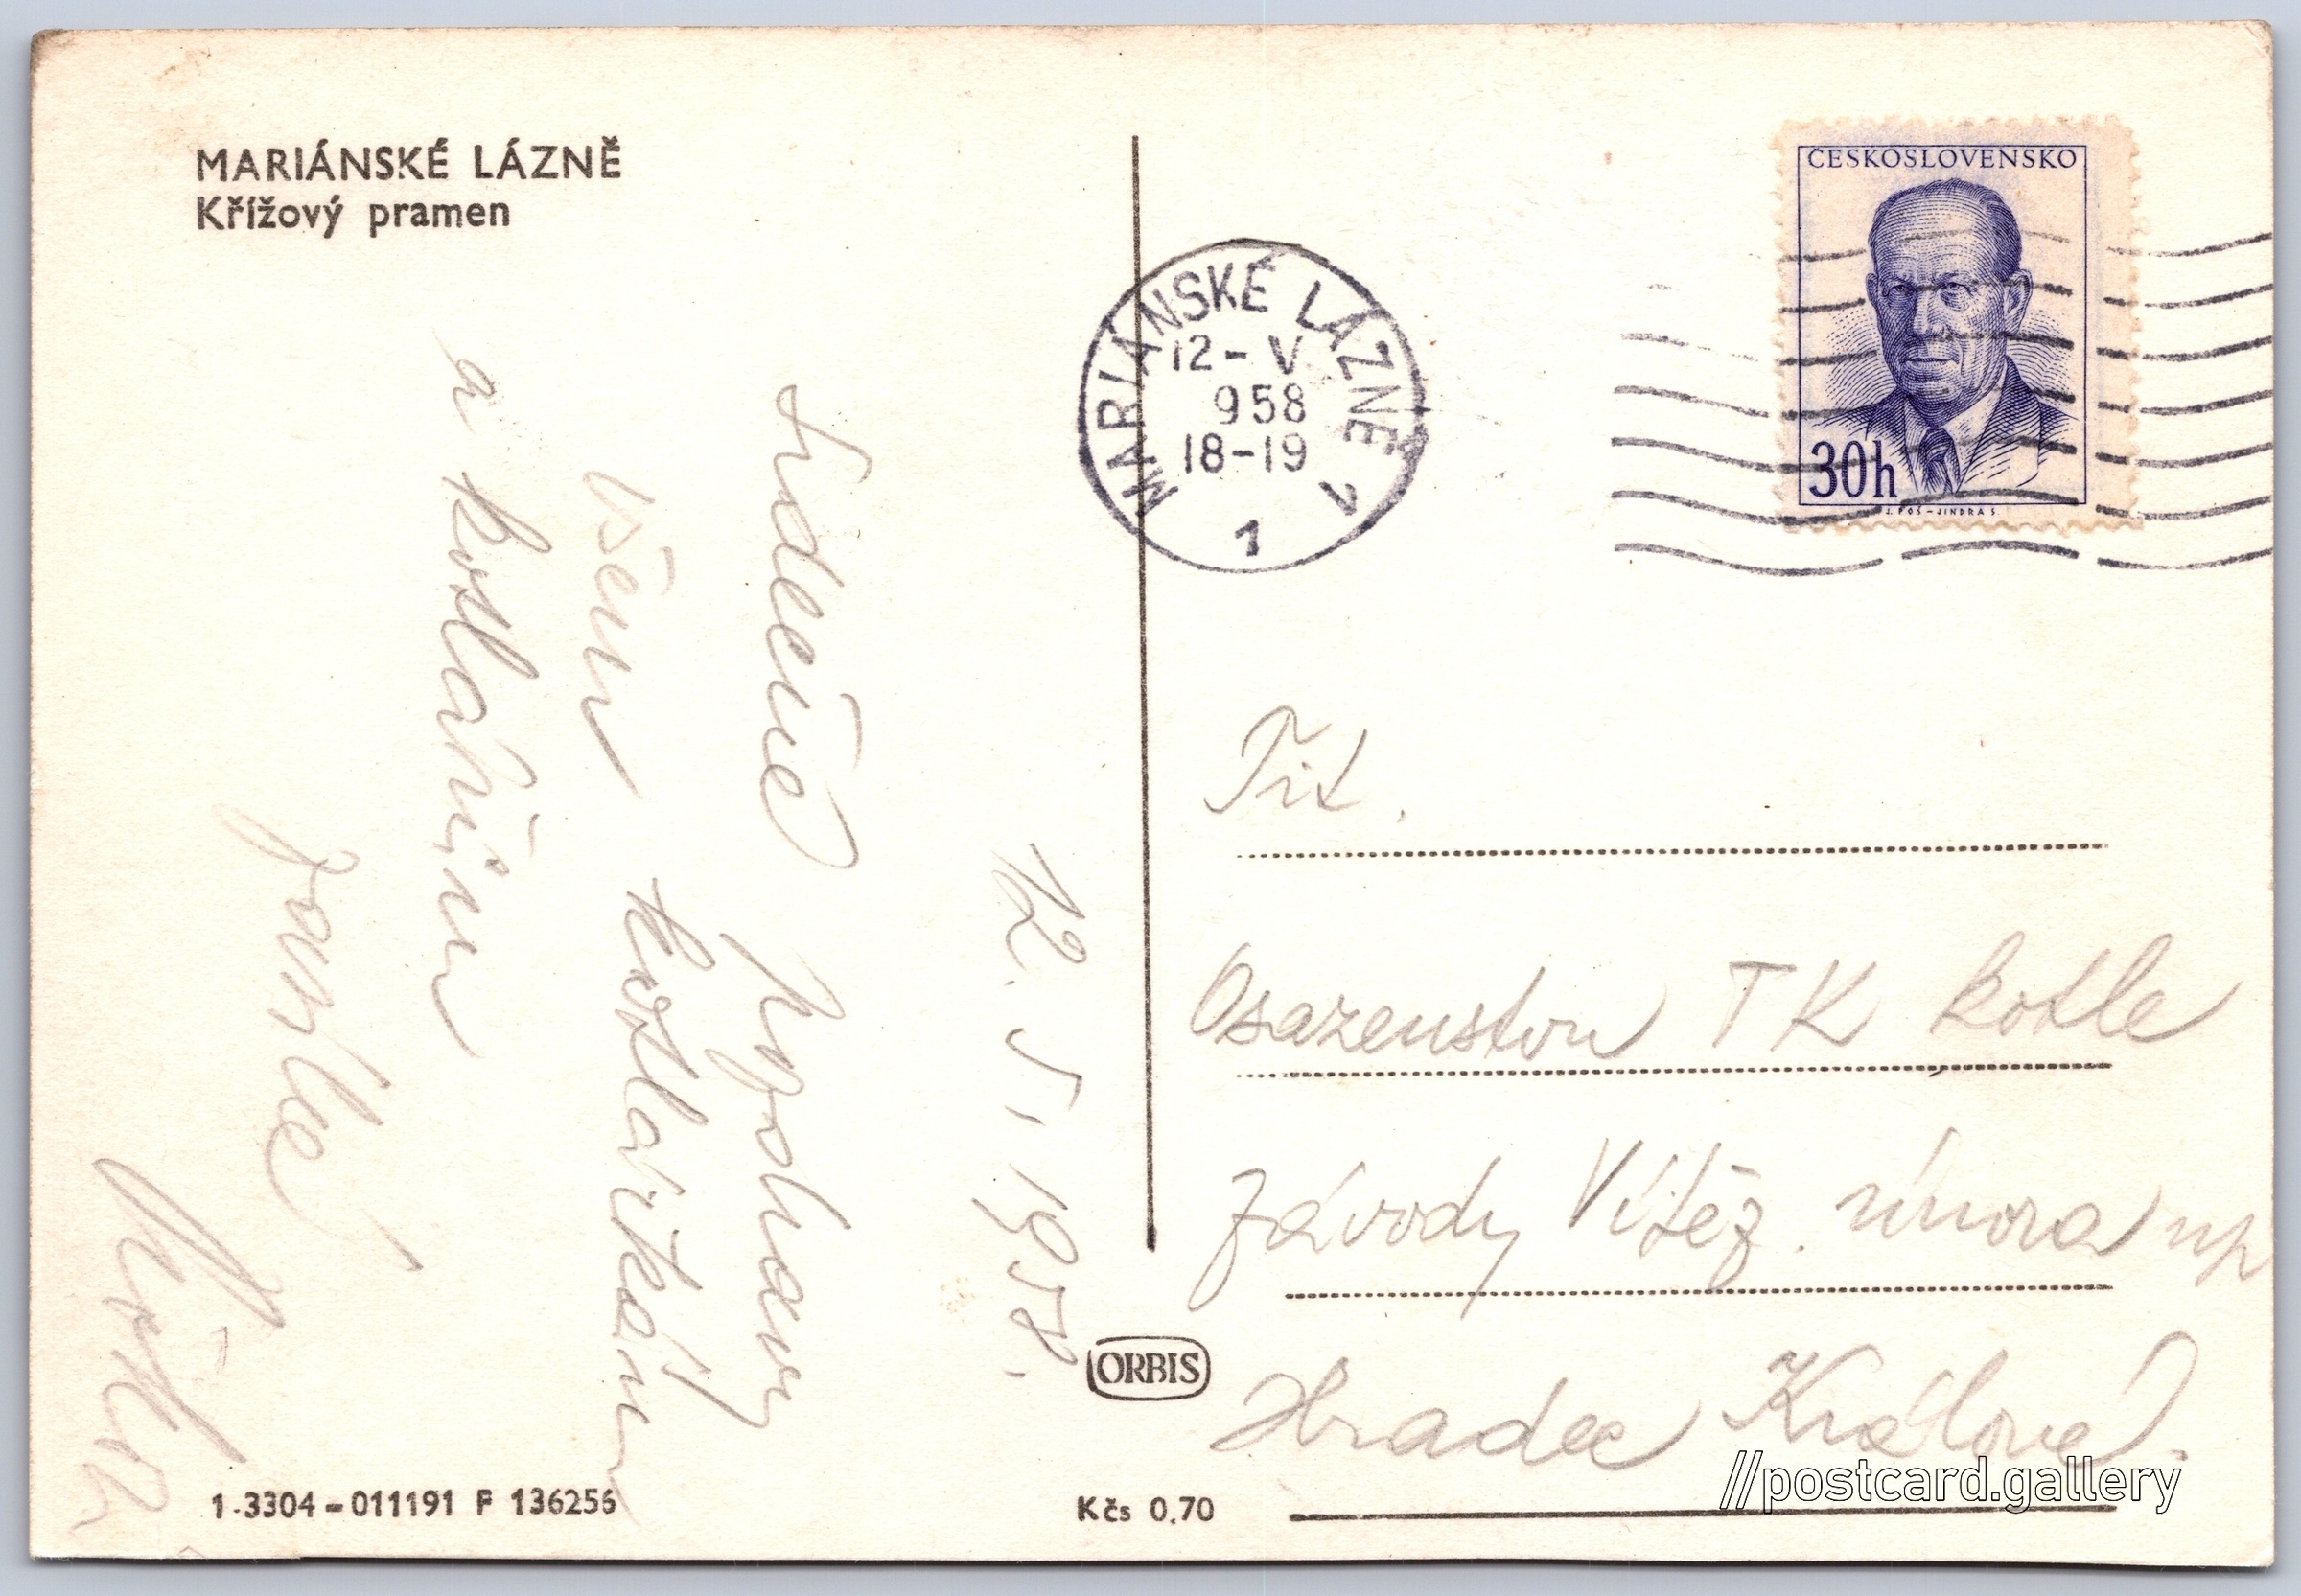 MARIÁNSKÉ LÁZNĚ
Křížový pramen
12. 5. 1958.
Srdečné pozdravy
všem kotlářkám
a kotlářům
ČESKOSLOVENSKO
30h
J. POŠ – JINDRA S.
MARIÁNSKÉ LÁZNĚ 1
12 - V
958
18-19
1
Tit.
Osazenstvu TK kotle
Závody Vítěz. února np
Hradec Králové.
ORBIS
1-3304-011191 F 136256
Kčs 0,70
//postcard.gallery